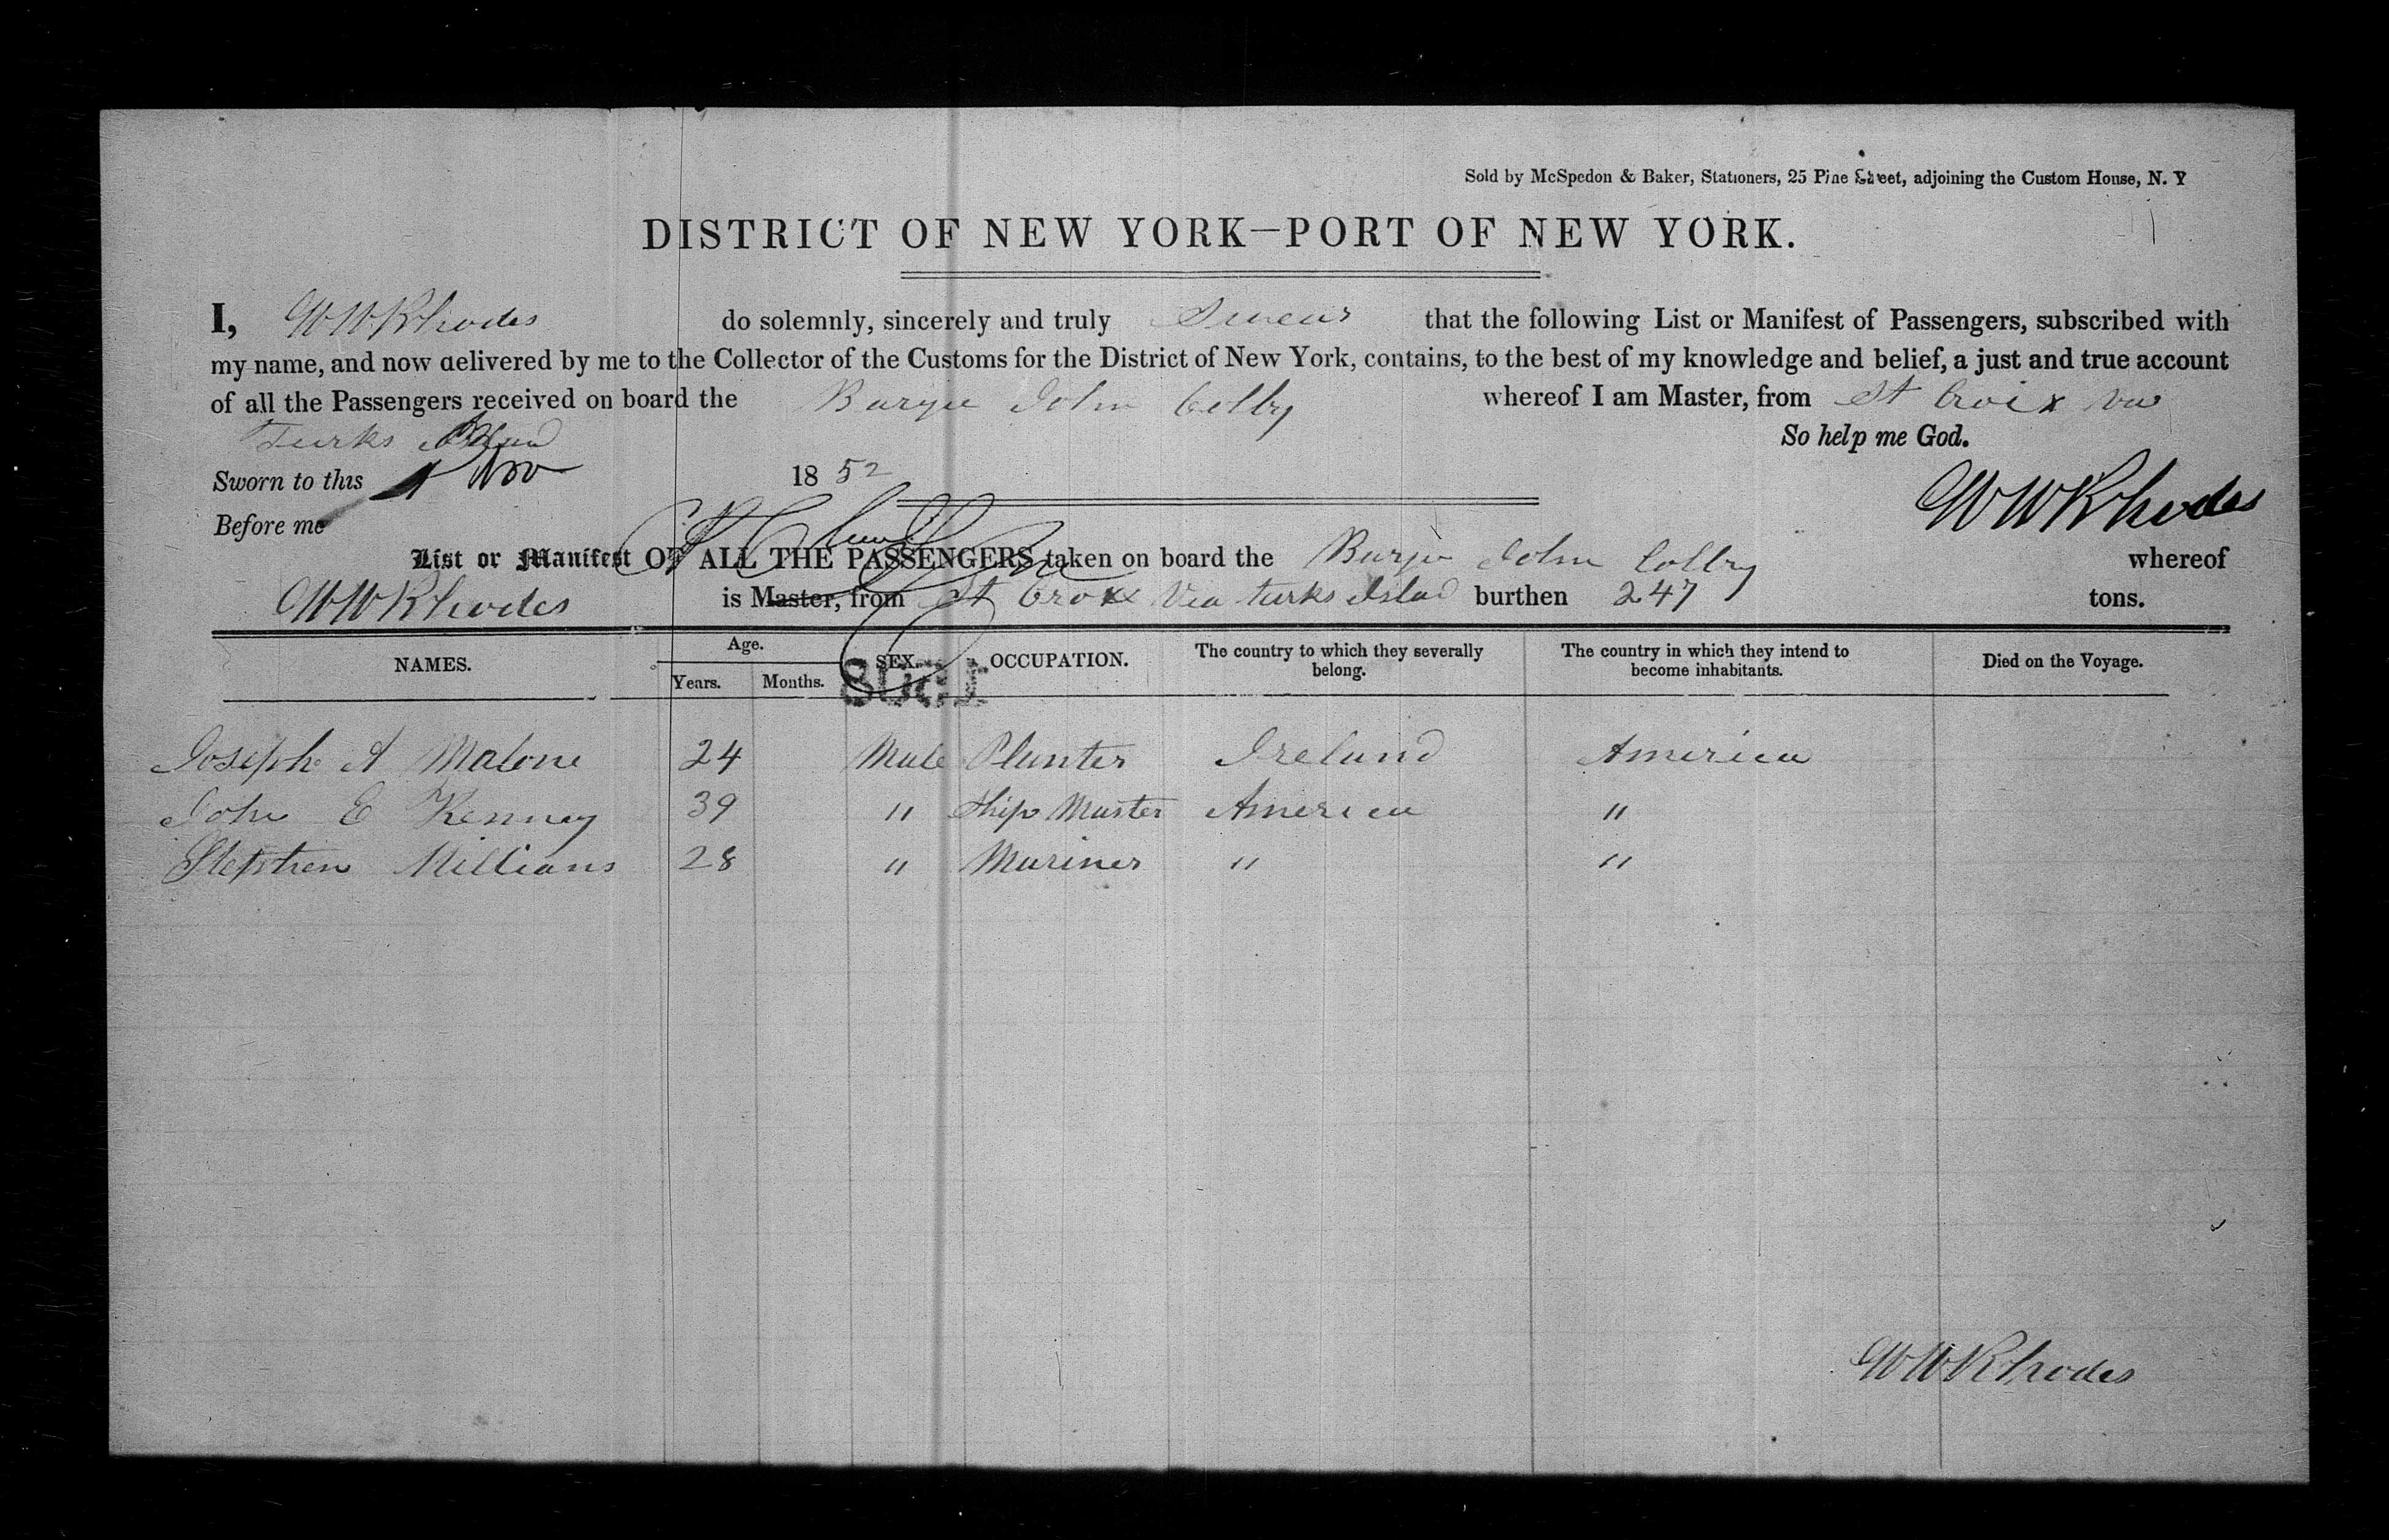 Sold by McSpedon & Baker, Stationers, 25 Pine Street, adjoining the Custom House, N. Y
DISTRICT OF NEW YORK—PORT OF NEW YORK.
I, W W Rhodes do solemnly, sincerely and truly Swear that the following List or Manifest of Passengers, subscribed with
my name, and now delivered by me to the Collector of the Customs for the District of New York, contains, to the best of my knowledge and belief, a just and true account
of all the Passengers received on board the Barque John Colby whereof I am Master, from St Croix via
Turks Island
So help me God.
Sworn to this 1 Nov 1852
W W Rhodes
Before me
List or Manifest OF ALL THE PASSENGERS taken on board the Barque John Colby whereof
W W Rhodes is Master, from St Croix Via turks Island burthen 247 tons.
NAMES. Age. Years. Months. SEX. OCCUPATION. The country to which they severally belong. The country in which they intend to become inhabitants. Died on the Voyage.
Joseph A Malone 24 Male Planter Ireland America
John E Kenney 39 " Ship Master America "
Stephen Millians 28 " Mariner " "
W W Rhodes